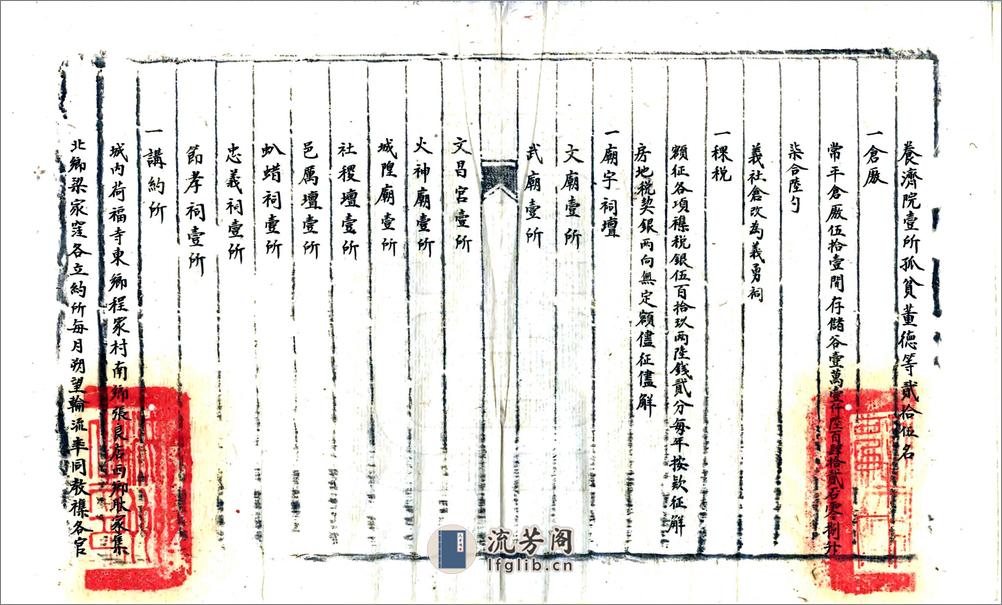 養濟院壹所孤貧董德等貳拾伍名
一倉廒
常平倉廒伍拾壹間存儲谷壹萬壹仟陸百肆拾貳石零捌升
柒合陸勺
義社倉改為義勇祠
一稞税
額征各項襍税銀伍百拾玖兩陸錢貳分每年按款征解
房地税契銀兩向無定額儘征儘解
一廟宇祠壇
文廟壹所
武廟壹所
文昌宮壹所
火神廟壹所
城隍廟壹所
社稷壇壹所
邑厲壇壹所
虲蜡祠壹所
忠義祠壹所
節孝祠壹所
一講約所
城内荷福寺東鄉程家村南鄉張良店西鄉耿家集
北鄉梁家窪各立約所每月朔望輪流率同教襍各官
流芳阁
lfglib.cn